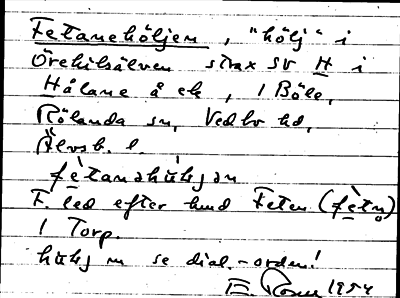 Fetanehöljen, "hölj" i
Örekilsälven strax SV H i
Hålane å ek, 1 Böle,
Rölanda sn, Vedbo hd,
Älvsb. l.
F. led efter hund Feten (
1 Torp.
se dial.-orden!
1954